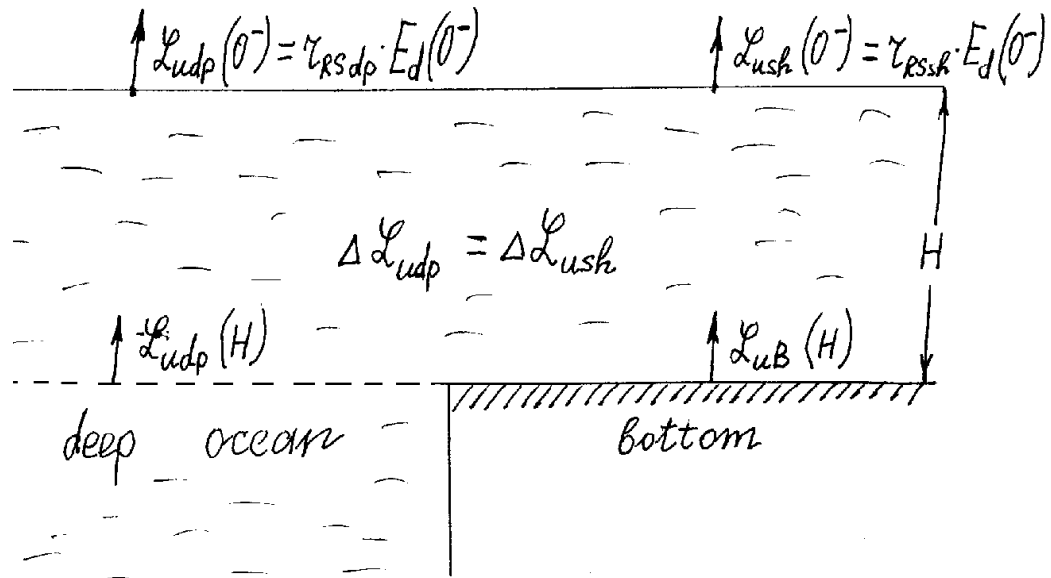 ℒudp(0⁻) = r_RSdp · E_d(0⁻) ℒush(0⁻) = r_RSsh · E_d(0⁻)
Δℒudp = Δℒush
H
ℒudp(H) ℒuB(H)
deep ocean bottom